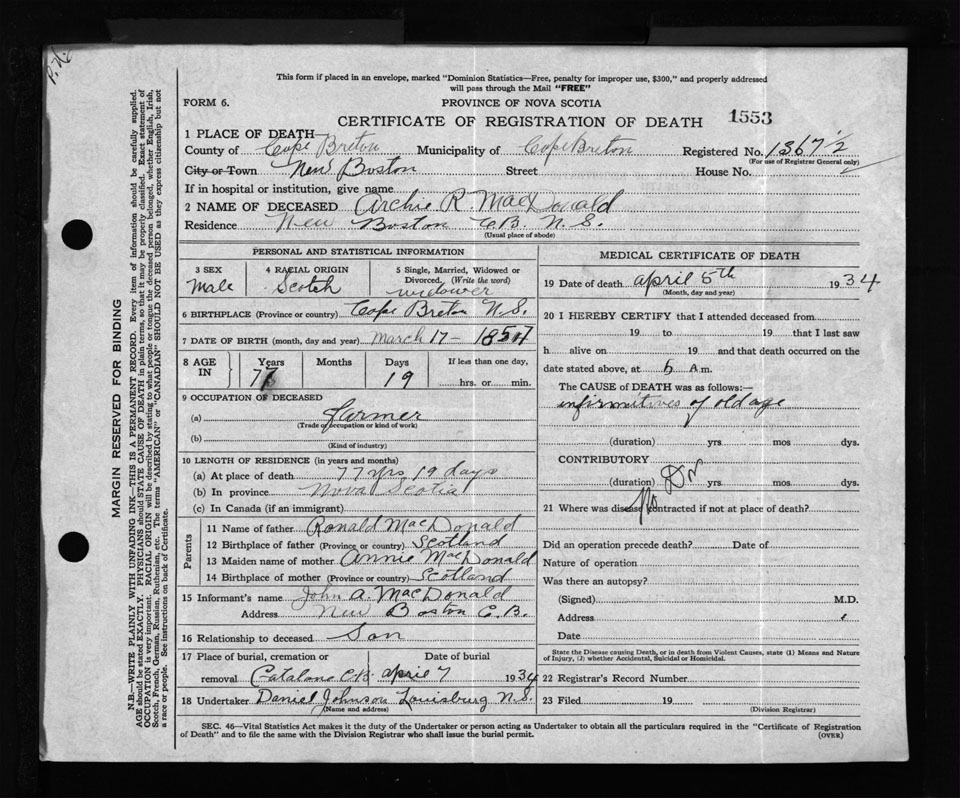 P.N.
This form if placed in an envelope, marked "Dominion Statistics—Free, penalty for improper use, $300," and properly addressed
will pass through the Mail "FREE"
FORM 6.
PROVINCE OF NOVA SCOTIA
CERTIFICATE OF REGISTRATION OF DEATH
1553
1 PLACE OF DEATH—
County of Cape Breton Municipality of Cape Breton Registered No. 1367 1/2
(For use of Registrar General only)
City or Town New Boston Street House No.
If in hospital or institution, give name
2 NAME OF DECEASED Archie R. MacDonald
Residence New Boston C.B. N.S.
(Usual place of abode)
PERSONAL AND STATISTICAL INFORMATION
3 SEX Male
4 RACIAL ORIGIN Scotch
5 Single, Married, Widowed or Divorced. (Write the word) widower
6 BIRTHPLACE (Province or country) Cape Breton N.S.
7 DATE OF BIRTH (month, day and year) March 17 – 1857
8 AGE IN
Years Months Days If less than one day,
77 19 hrs. or min.
9 OCCUPATION OF DECEASED
(a) Farmer
(Trade or occupation or kind of work)
(b)
(Kind of industry)
10 LENGTH OF RESIDENCE (in years and months)
(a) At place of death 77 yrs 19 days
(b) In province Nova Scotia
(c) In Canada (if an immigrant)
Parents
11 Name of father Ronald MacDonald
12 Birthplace of father (Province or country) Scotland
13 Maiden name of mother Annie MacDonald
14 Birthplace of mother (Province or country) Scotland
15 Informant's name John A. MacDonald
Address New Boston C.B.
16 Relationship to deceased Son
17 Place of burial, cremation or Date of burial
removal Catalone C.B. April 7 1934
18 Undertaker Daniel Johnson Louisburg N.S.
(Name and address)
MEDICAL CERTIFICATE OF DEATH
19 Date of death April 5th 1934
(Month, day and year)
20 I HEREBY CERTIFY that I attended deceased from
19 to 19 that I last saw
h alive on 19 and that death occurred on the
date stated above, at 6 A m.
The CAUSE of DEATH was as follows:—
infirmitives of old age
(duration) yrs. mos. dys.
CONTRIBUTORY
(duration) yrs. mos. dys.
No Dr
21 Where was disease contracted if not at place of death?
Did an operation precede death? Date of
Nature of operation
Was there an autopsy?
(Signed) M.D.
Address
Date
State the Disease causing Death, or in death from Violent Causes, state (1) Means and Nature
of Injury, (2) whether Accidental, Suicidal or Homicidal.
22 Registrar's Record Number
23 Filed 19
(Division Registrar)
SEC. 46—Vital Statistics Act makes it the duty of the Undertaker or person acting as Undertaker to obtain all the particulars required in the "Certificate of Registration
of Death" and to file the same with the Division Registrar who shall issue the burial permit.
(OVER)
MARGIN RESERVED FOR BINDING
N.B.—WRITE PLAINLY WITH UNFADING INK—THIS IS A PERMANENT RECORD. Every item of information should be carefully supplied.
AGE should be stated EXACTLY. PHYSICIANS should STATE CAUSE OF DEATH in plain terms, so that it may be properly classified. Exact statement of
OCCUPATION is very important. RACIAL ORIGIN will be described by stating to what people or tongue the deceased person belonged, whether English, Irish,
Scotch, French, German, Russian, Ruthenian, etc. The terms "AMERICAN" or "CANADIAN" SHOULD NOT BE USED as they express citizenship but not
a race or people. See instructions on back of Certificate.